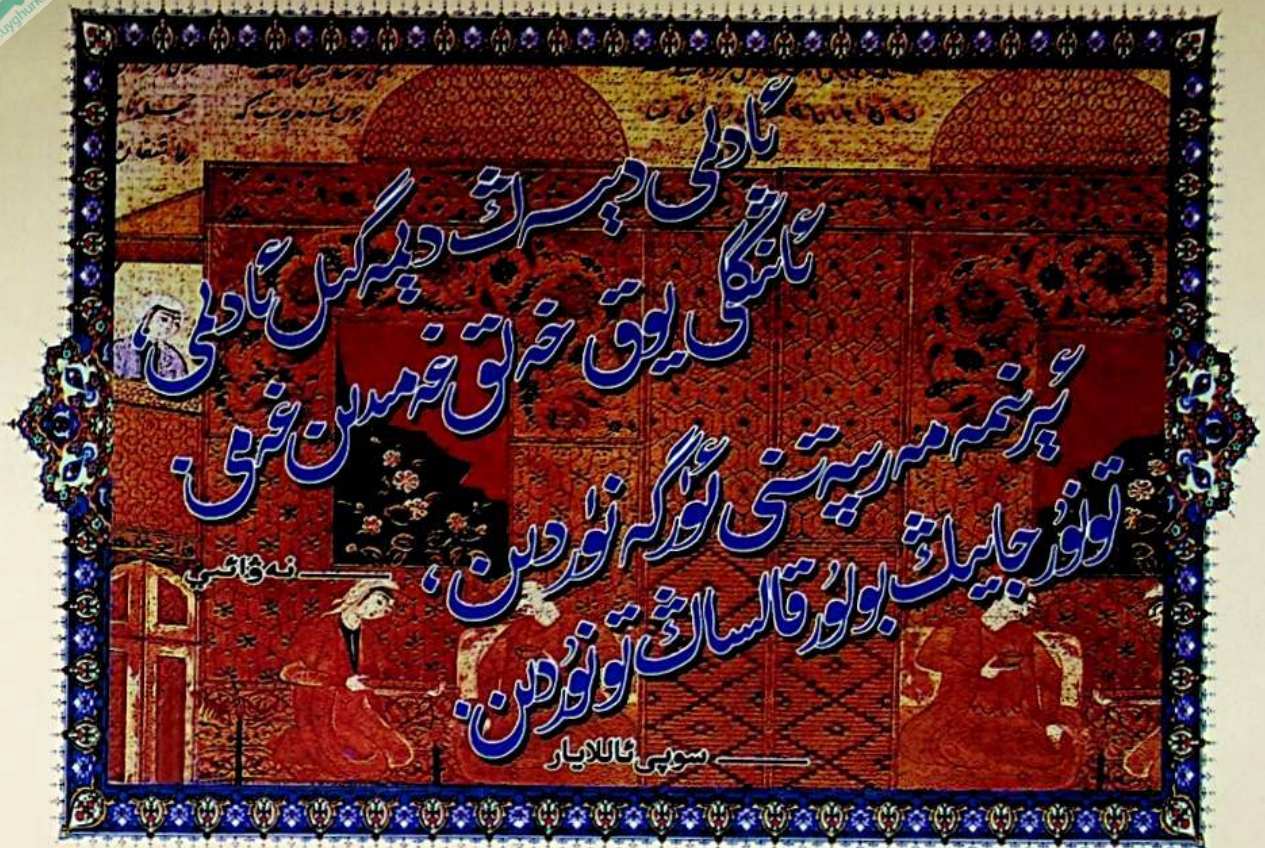 uyghurk
ئادىمى دېسەڭ دېمەگىل ئادىمى
ئانىڭكى يوق خەلق غەمىدىن غەمى.
نەۋائىي
ئېرىنمە مەرىپەتنى ئۆرگەنۇردىن،
تونۇر جايىڭ بولۇر قالساڭ تونۇردىن.
سوپى ئاللايار